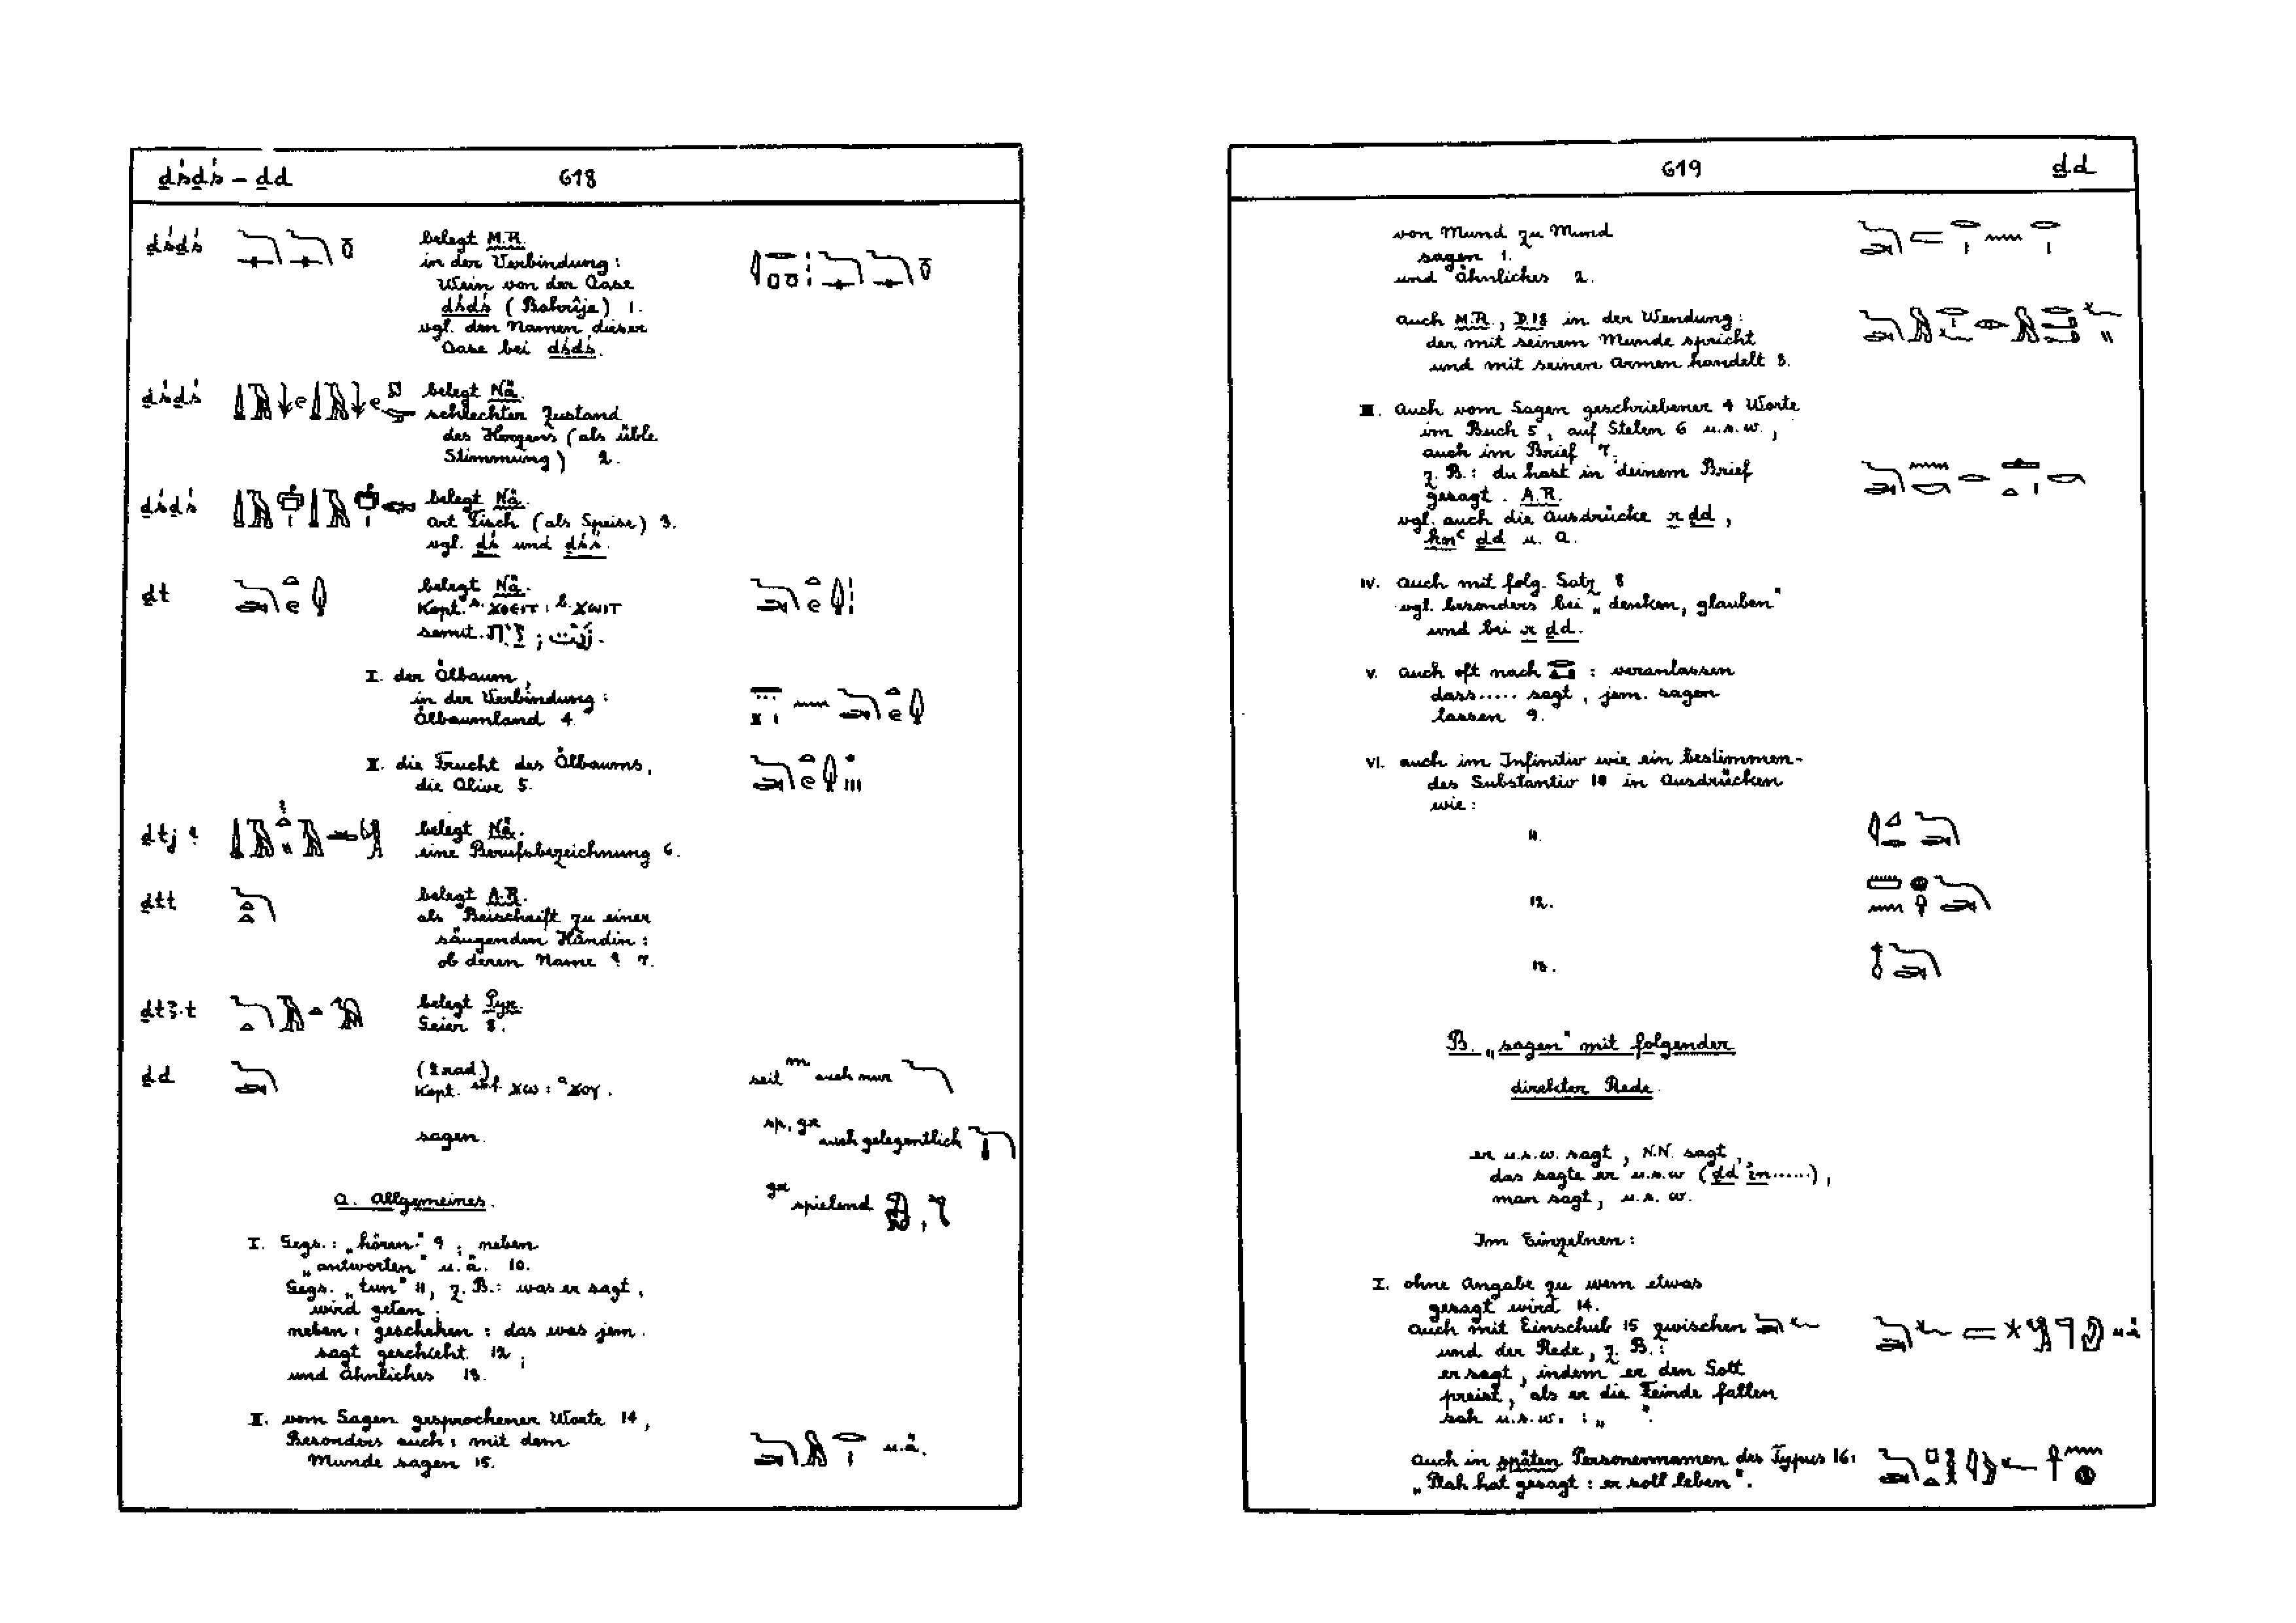 ḏśḏś – ḏd
618
ḏśḏś
belegt M.R.
in der Verbindung:
Wein von der Oase
ḏśḏś (Bahrîje) 1.
vgl. den Namen dieser
Oase bei ḏśḏś.
ḏśḏś
belegt Nä.
schlechter Zustand
des Herzens (als üble
Stimmung) 2.
ḏśḏś
belegt Nä.
Art Fisch (als Speise) 3.
vgl. ḏś und
ḏt
belegt Nä.
Kopt. ˢ·ϫⲟⲉⲓⲧ : ᵇ·ϫⲱⲓⲧ
semit. זַיִת ; زَيْت.
I. der Ölbaum,
in der Verbindung:
Ölbaumland 4.
II. die Frucht des Ölbaums,
die Olive 5.
ḏtj ?
belegt Nä.
eine Berufsbezeichnung 6.
ḏtt
belegt A.R.
als Beischrift zu einer
säugenden Hündin:
ob deren Name ? 7.
ḏtꜣ·t
belegt Pyr.
Geier 8.
ḏd
(2 rad.)
Kopt. ϫⲱ : ᵃϫⲟⲩ.
seit m auch nur
sagen.
sp, gr auch gelegentlich
gr spielend
A. Allgemeines.
I. Gegs.: „hören" 9 ; neben
„antworten" u.ä. 10.
Gegs. „tun" 11, z.B.: was er sagt,
wird getan.
neben: geschehen: das was jem.
sagt geschieht 12 ;
und Ähnliches 13.
II. vom Sagen gesprochener Worte 14,
Besonders auch: mit dem
Munde sagen 15.
u.ä.
619
ḏd
von Mund zu Mund
sagen 1.
und Ähnliches 2.
auch M.R., D.18 in der Wendung:
der mit seinem Munde spricht
und mit seinen Armen handelt 3.
III. Auch vom Sagen geschriebener 4 Worte
im Buch 5, auf Stelen 6 u.s.w.,
auch im Brief 7.
z.B.: du hast in deinem Brief
gesagt. A.R.
vgl. auch die Ausdrücke r ḏd,
ḥnꜥ ḏd u. a.
IV. auch mit folg. Satz 8
vgl. besonders bei „denken, glauben"
und bei r ḏd.
V. auch oft nach : veranlassen
dass..... sagt, jem. sagen
lassen 9.
VI. auch im Infinitiv wie ein bestimmen-
des Substantiv 10 in Ausdrücken
wie:
11.
12.
13.
B. „sagen" mit folgender
direkter Rede.
er u.s.w. sagt, N.N. sagt,
das sagte er u.s.w. (ḏd ı͗n......),
man sagt, u.s.w.
Im Einzelnen:
I. ohne Angabe zu wem etwas
gesagt wird 14.
Auch mit Einschub 15 zwischen
und der Rede, z.B.:
u.ä
er sagt, indem er den Gott
preist, als er die Feinde fallen
sah u.s.w. : „ ".
Auch in späten Personennamen des Typus 16:
„Ptah hat gesagt: er soll leben".